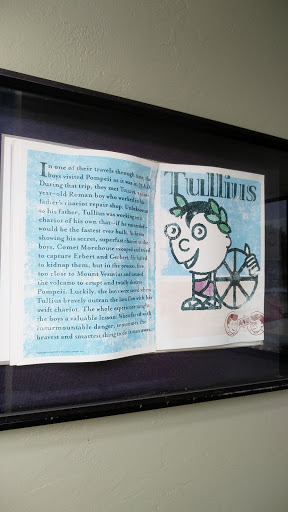 In one of their travels through time, the
boys visited Pompeii as it was in 79 A.D.
During that trip, they met Tullius,
year-old Roman boy who worked in his
father's chariot repair shop. Unbeknownst
to his father, Tullius was working on a
chariot of his own that—if he succeeded—
would be the fastest ever built. While he was
showing his secret, superfast chariot to the
boys, Comet Morehouse swooped in
to capture Erbert and Gerbert. He failed
to kidnap them, but in the process,
too close to Mount Vesuvius and caused
the volcano to erupt and totally destroy
Pompeii. Luckily, the boys were saved when
Tullius bravely outran the lava flow with his
swift chariot. The whole experience taught
the boys a valuable lesson: When faced with
insurmountable danger, sometimes the
bravest and smartest thing to do is run away.
Tullius